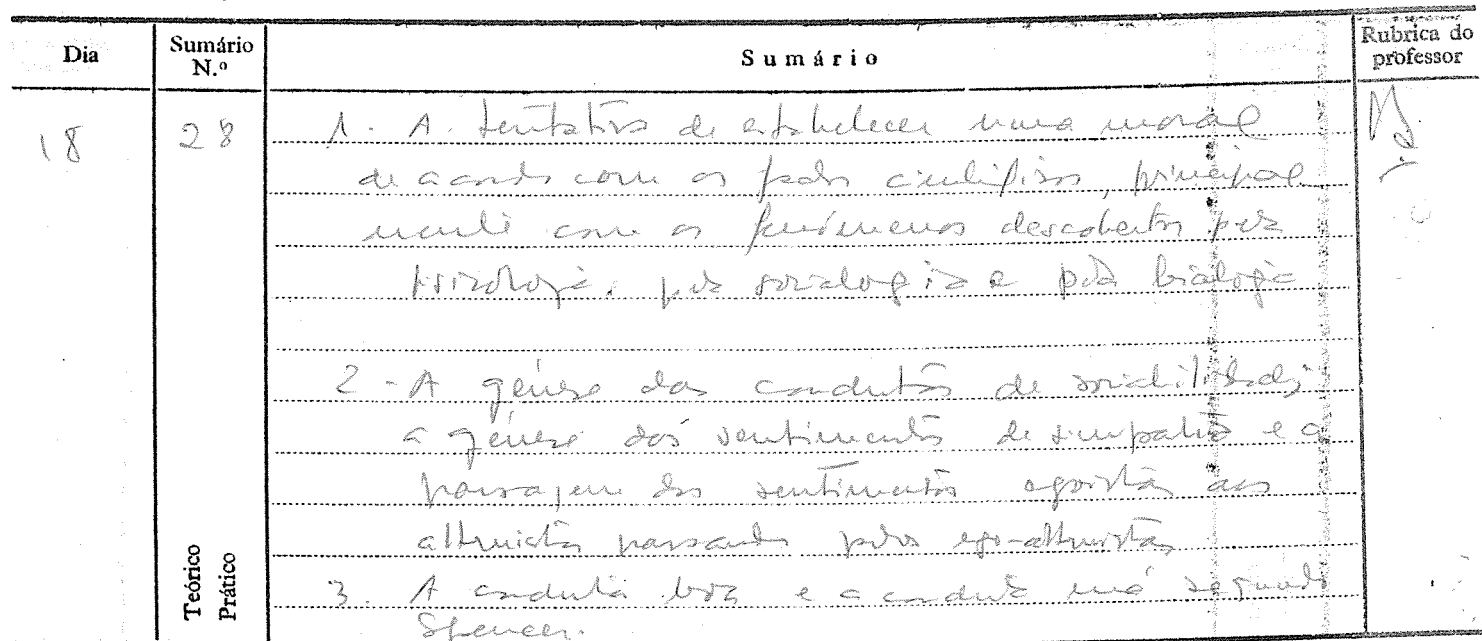 Dia
Sumário N.º
Sumário
Rubrica do professor
18
28
1. A tentativa de estabelecer uma moral
de acordo com os dados científicos, principal
mente com os fenómenos descobertos pela
psicologia, pela sociologia e pela biologia
2 - A génese das condutas de sociabilidade;
a génese dos sentimentos de simpatia e a
passagem dos sentimentos egoistas aos
altruistas passando pelos ego-altruistas
3. A conduta boa e a conduta má segundo
Spencer.
Teórico
Prático